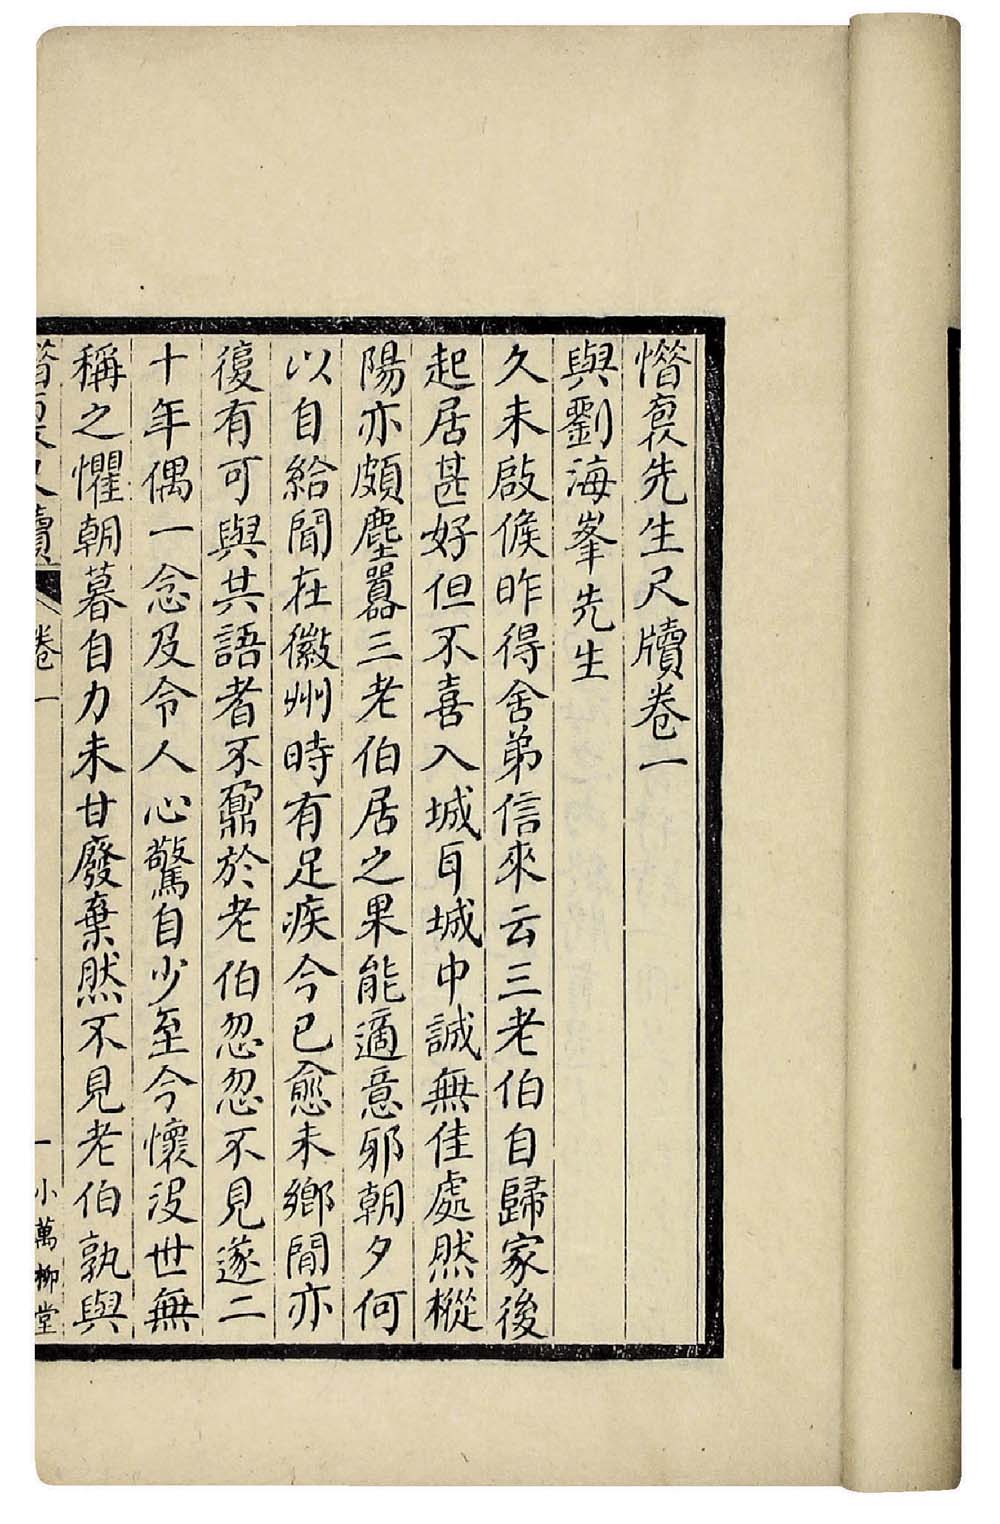 惜裒先生尺牘卷一
與劉海峯先生
久未啟候昨得舍弟信來云三老伯自歸家後
起居甚好但不喜入城耳城中誠無佳處然樅
陽亦頗塵囂三老伯居之果能適意邪朝夕何
以自給聞在徽州時有足疾今已愈未鄉閒亦
復有可與共語者不鼐於老伯忽忽不見遂二
十年偶一念及令人心驚自少至今懷沒世無
稱之懼朝暮自力未甘廢棄然不見老伯孰與
卷一
一
小萬柳堂